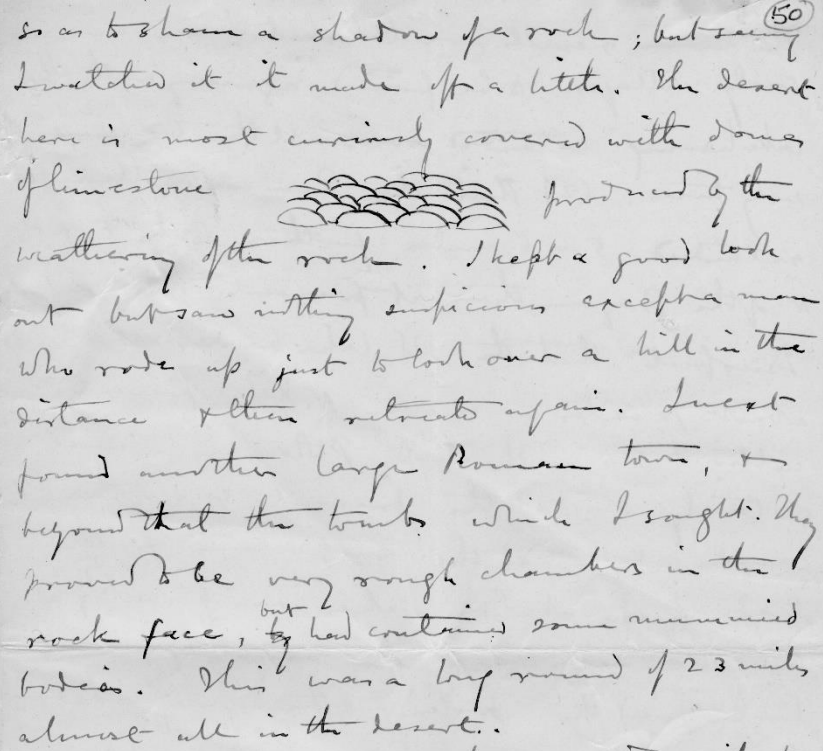 50
so as to sham a shadow of a rock; but seeing
I watched it it made off a little. The desert
here is most curiously covered with domes
of limestone produced by the
weathering of the rock. I kept a good look
out but saw nothing suspicious except a man
who rode up just to look over a hill in the
distance & then retreated again. I next
found another large Roman town, &
beyond that the tombs which I sought. They
proved to be very rough chambers in the
but
rock face, had contained some mummied
bodies. This was a long round of 23 miles
almost all in the desert.